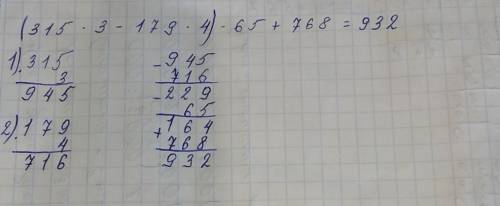 (315 · 3 - 179 · 4) - 65 + 768 = 932
1) · 315
3
945
2) · 179
4
716
- 945
716
- 229
65
+ 164
768
932